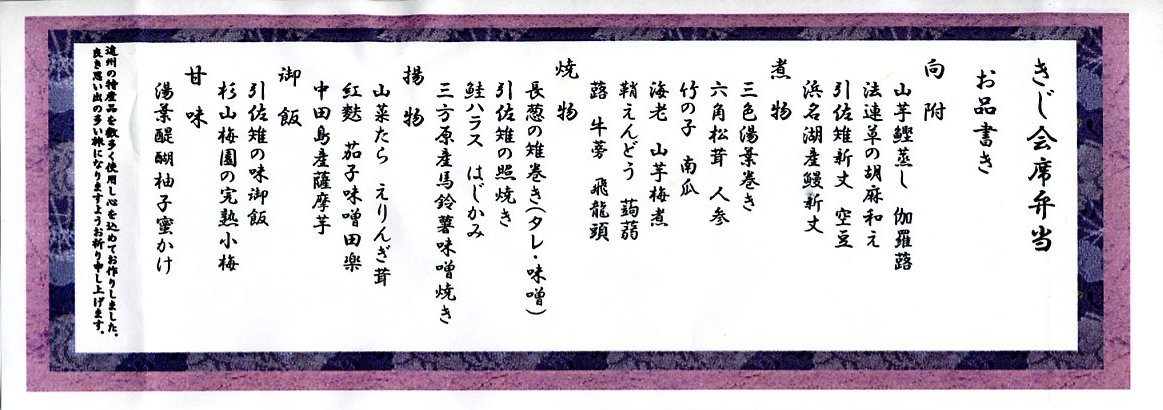 きじ会席弁当
お品書き
向附
山芋鰹蒸し 伽羅蕗
法連草の胡麻和え
引佐雉新丈 空豆
浜名湖産鰻新丈
煮物
三色湯葉巻き
六角松茸 人参
竹の子 南瓜
海老 山芋梅煮
鞘えんどう 蒟蒻
蕗 牛蒡 飛龍頭
焼物
長葱の雉巻き(タレ・味噌)
引佐雉の照焼き
鮭ハラス はじかみ
三方原産馬鈴薯味噌焼き
揚物
山菜たら えりんぎ茸
紅麩 茄子味噌田楽
中田島産薩摩芋
御飯
引佐雉の味御飯
杉山梅園の完熟小梅
甘味
湯葉醍醐柚子蜜かけ
遠州の特産品を数多く使用し心を込めてお作りしました。
良き思い出の多い旅になりますようお祈り申し上げます。